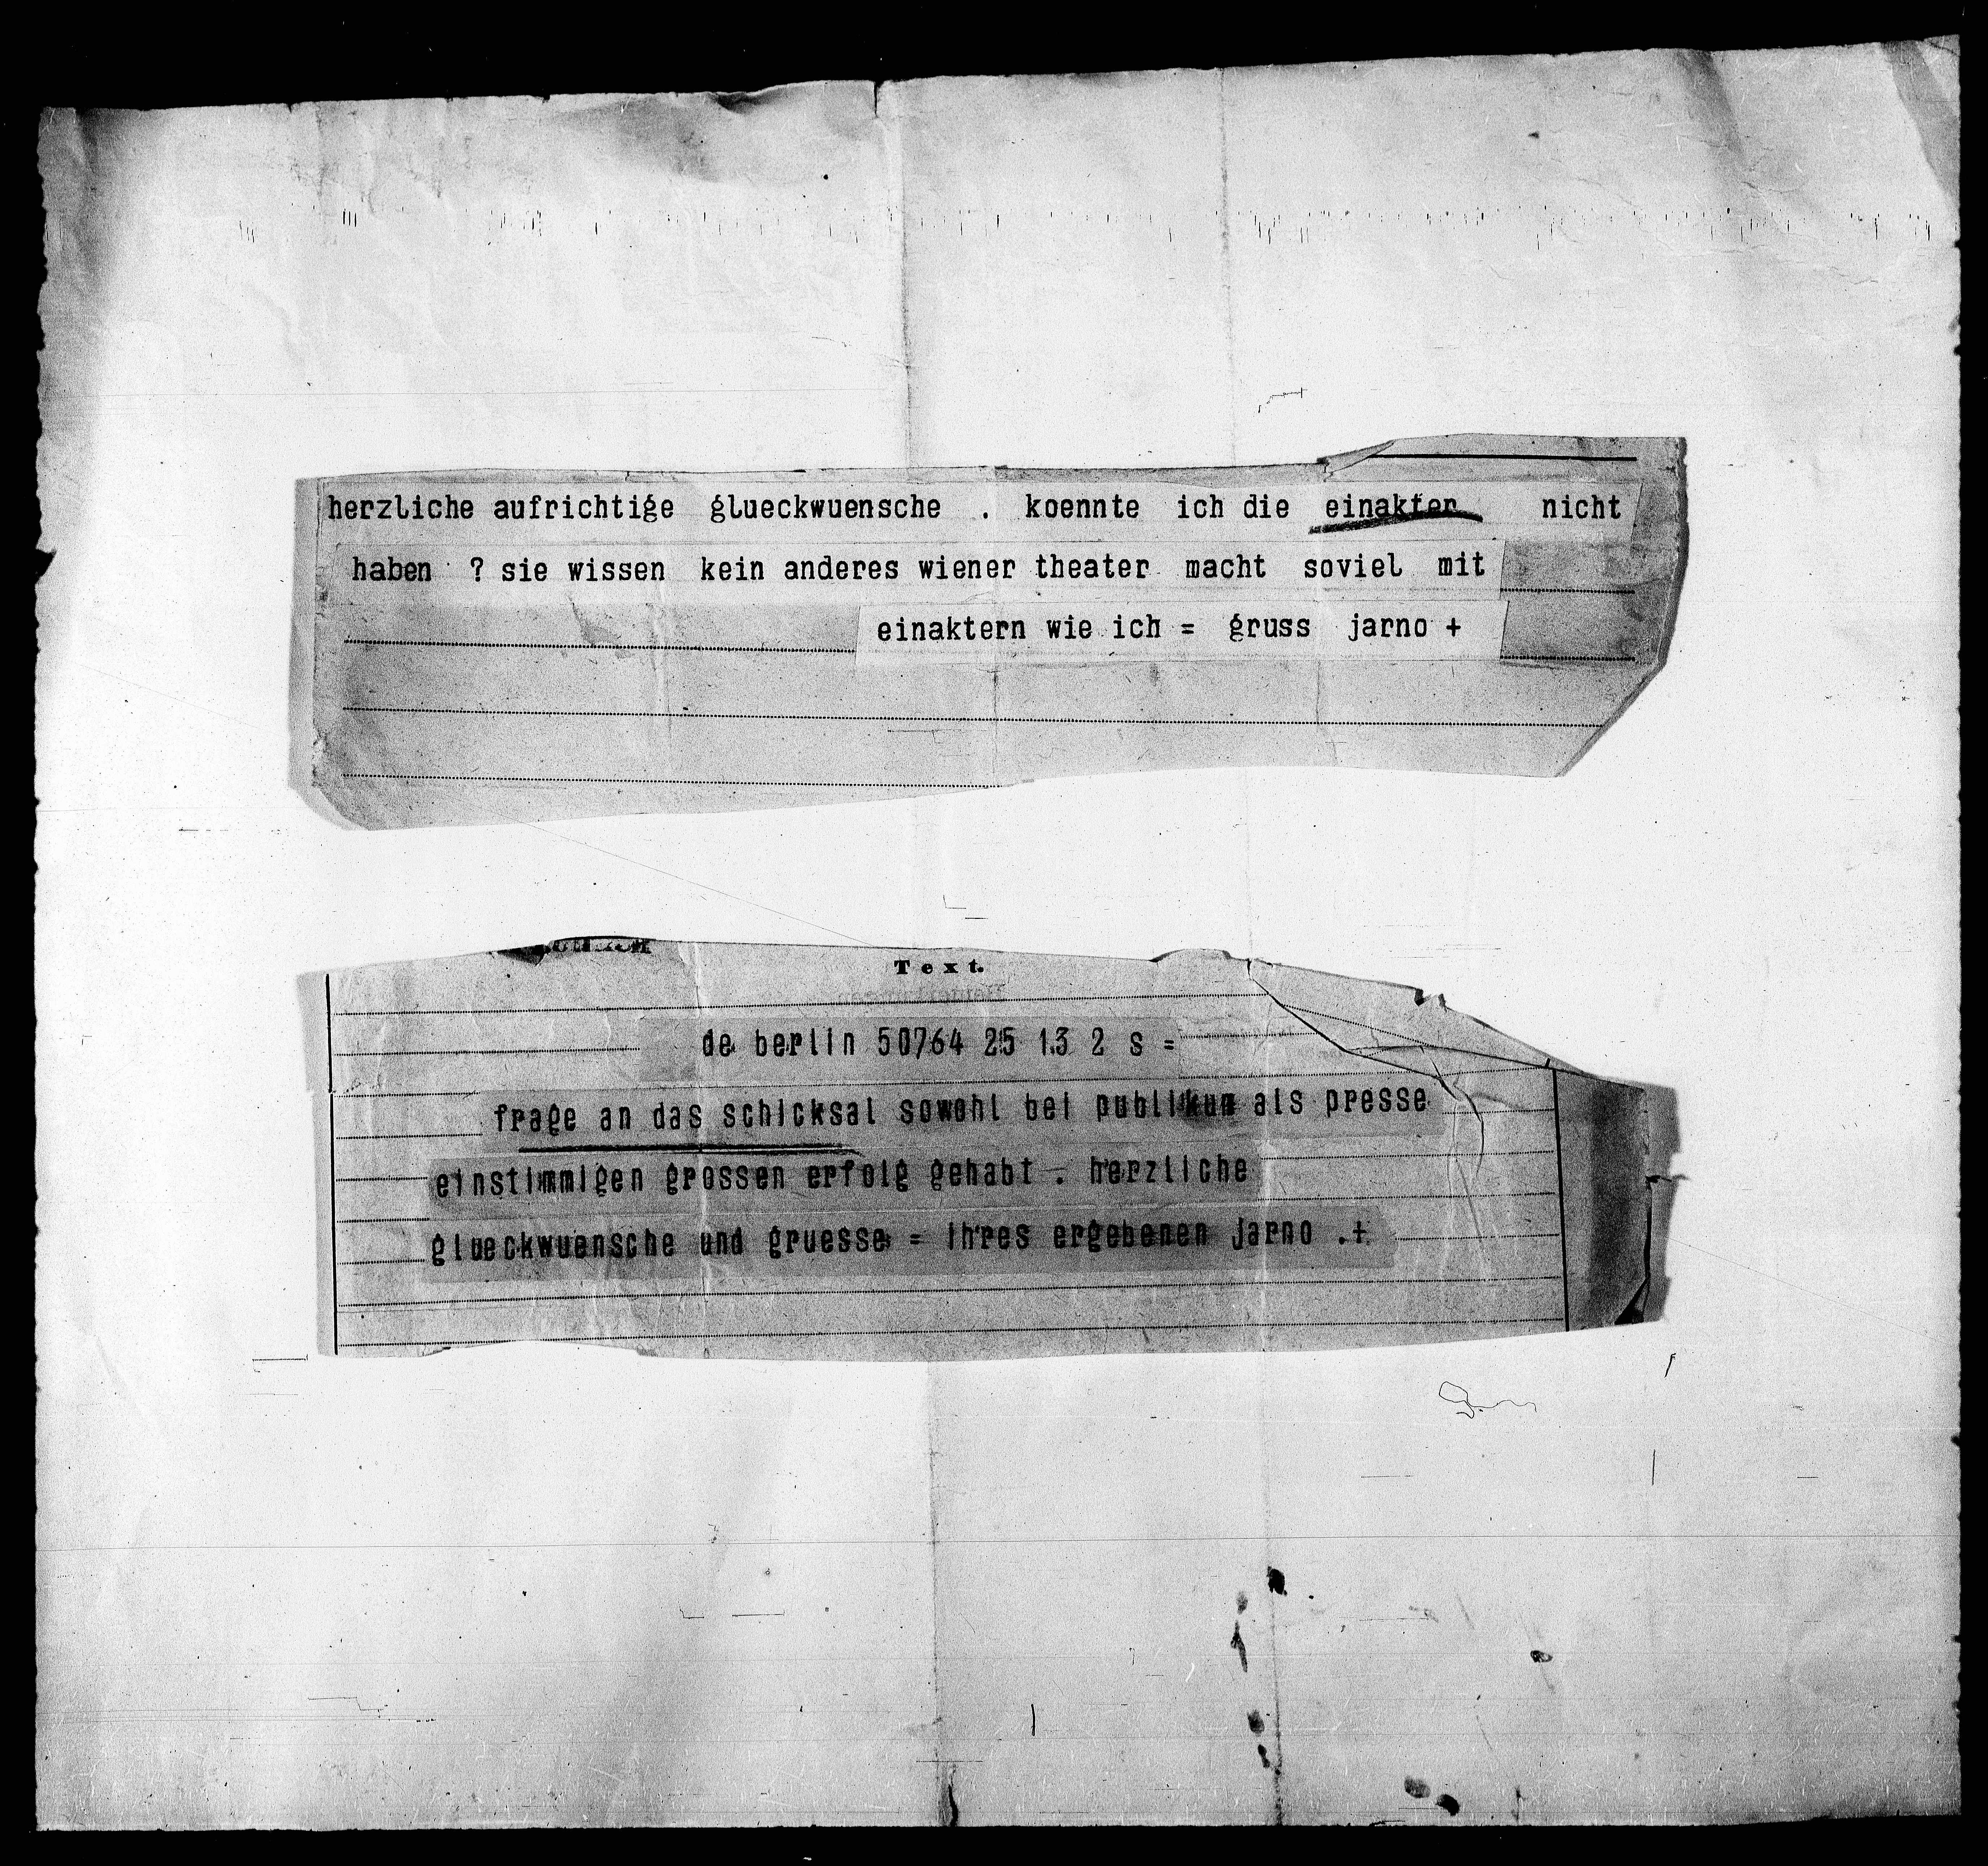 herzliche aufrichtige glueckwuensche . koennte ich die einakter nicht
haben ? sie wissen kein anderes wiener theater macht soviel mit
einaktern wie ich = gruss jarno +
Text.
de berlin 50764 25 13 2 s =
frage an das schicksal sowohl bei publikum als presse
einstimmigen grossen erfolg gehabt . herzliche
glueckwuensche und gruesse = ihres ergebenen jarno .+